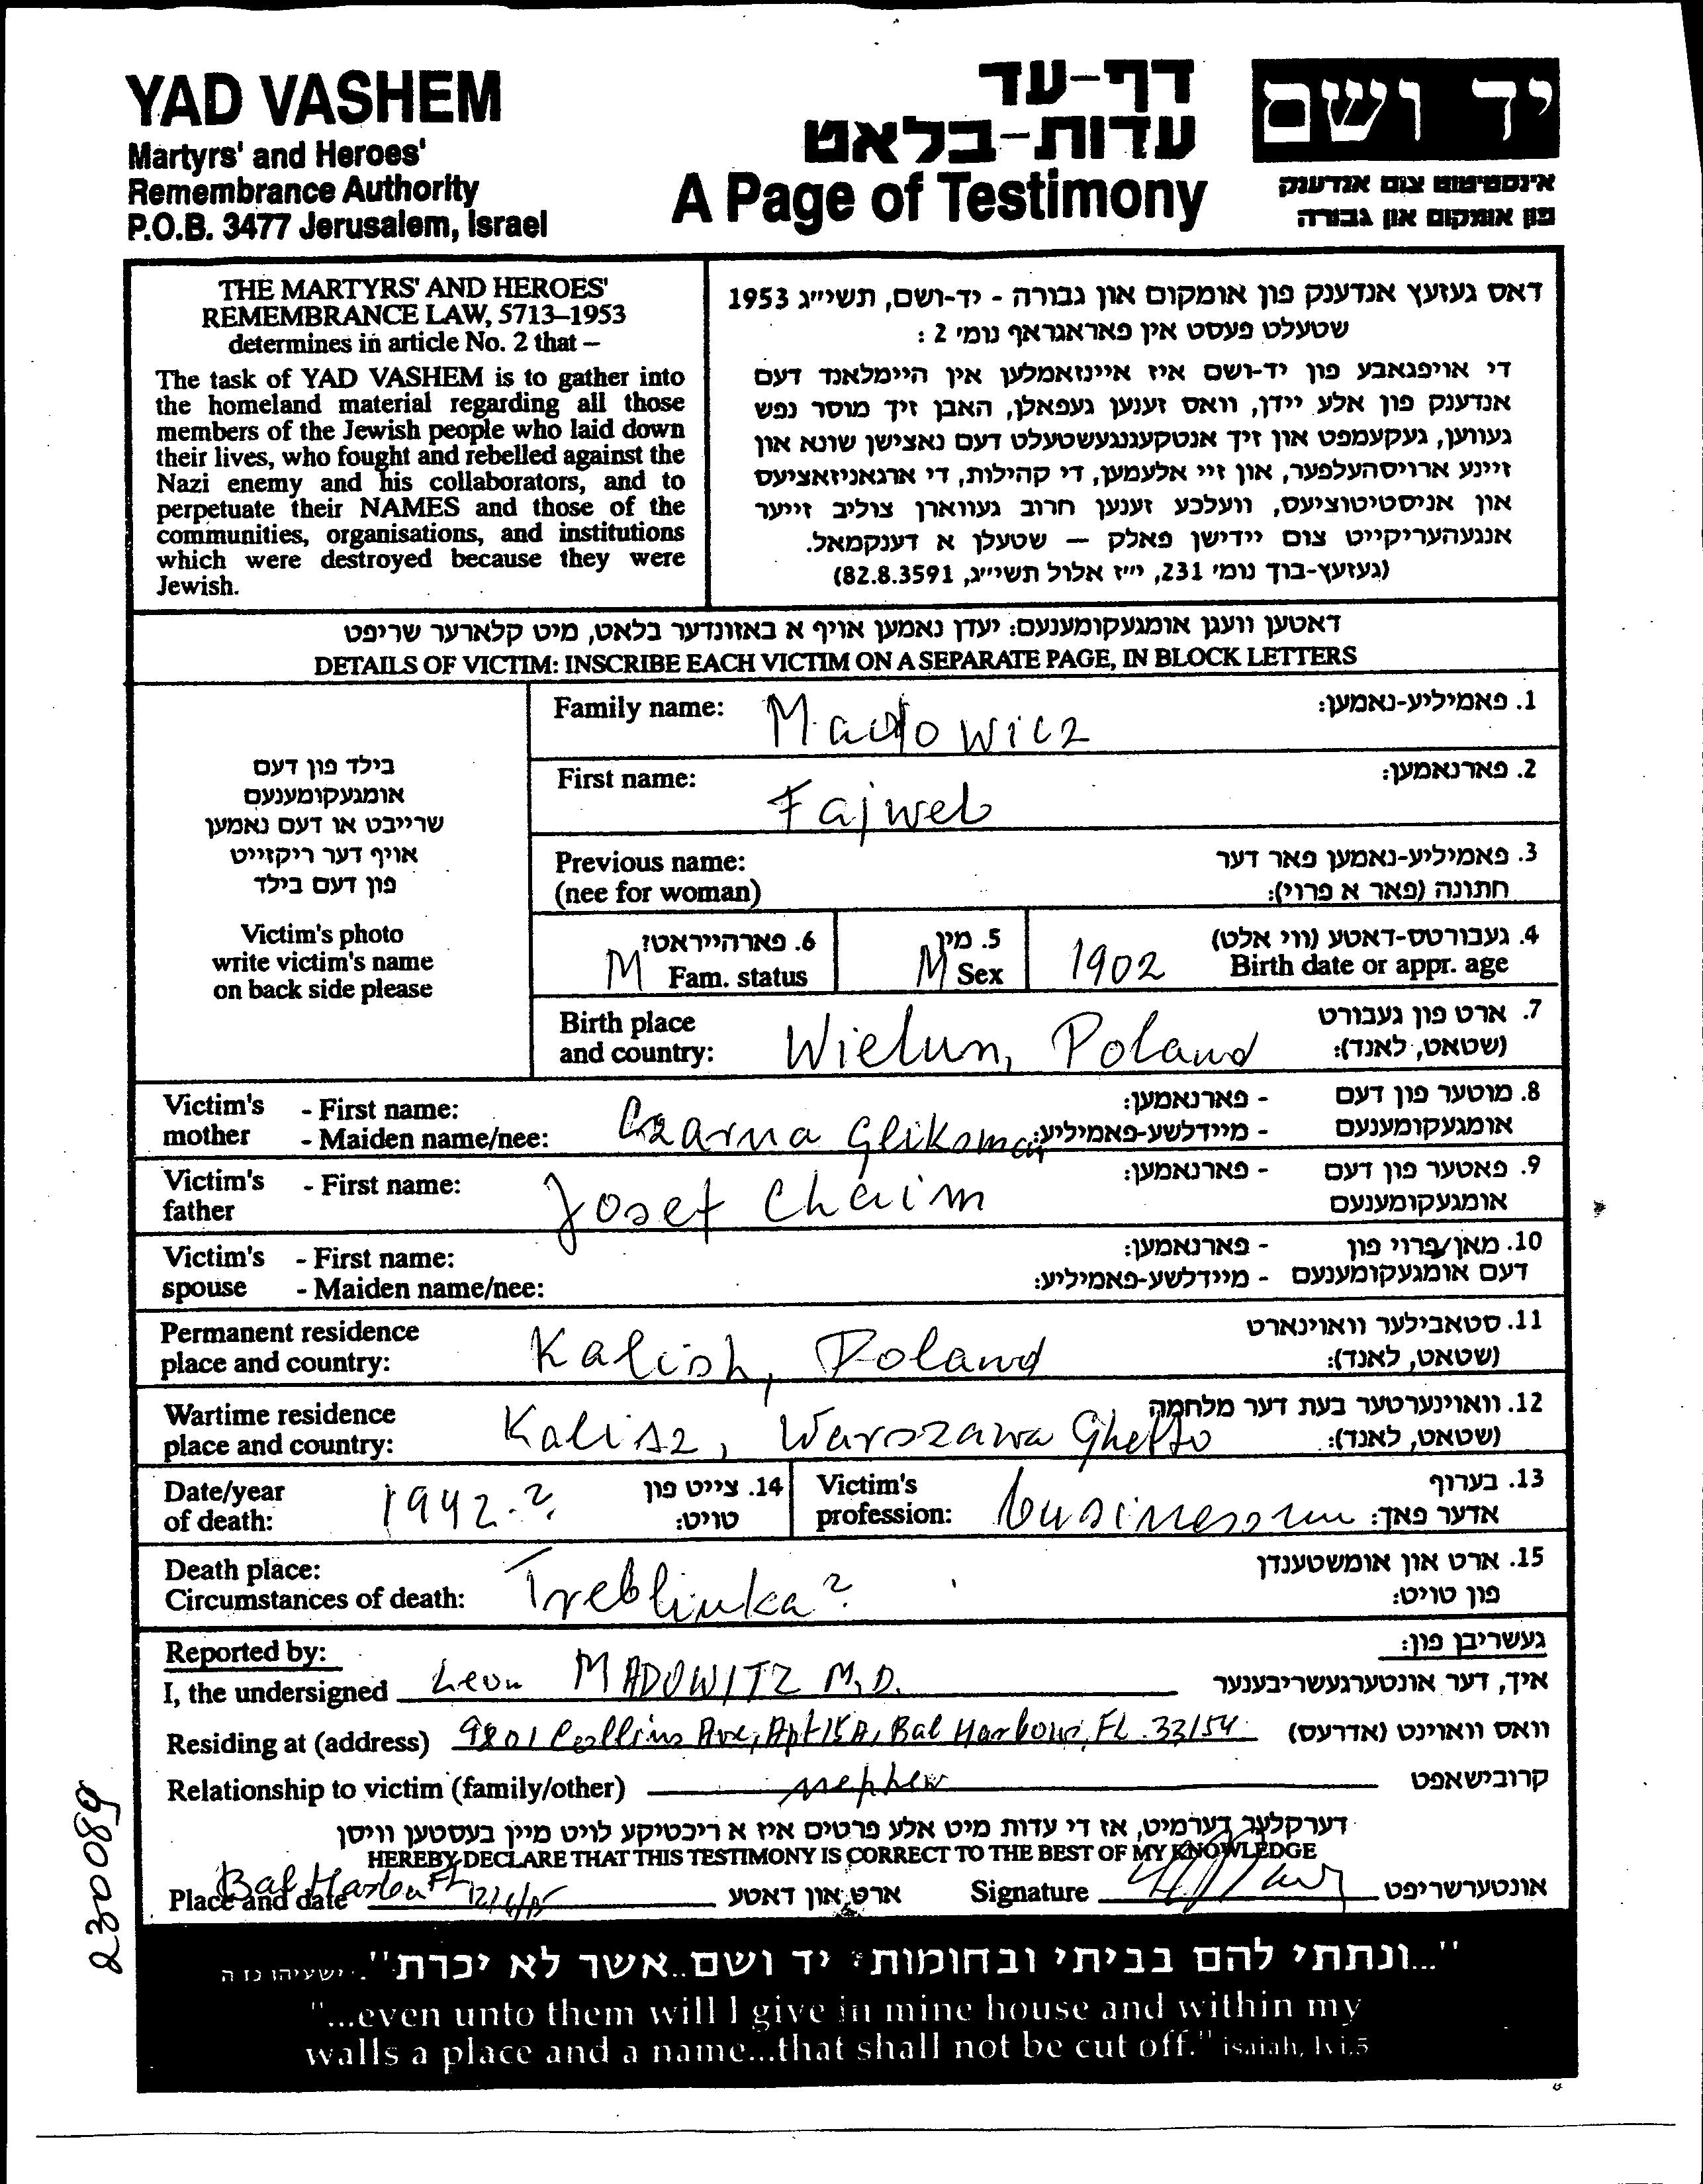 YAD VASHEM
Martyrs' and Heroes'
Remembrance Authority
P.O.B. 3477 Jerusalem, Israel
דף-עד
עדות-בלאט
A Page of Testimony
יד ושם
אינסטיטוט צום אנדענק
פון אומקום און גבורה
THE MARTYRS' AND HEROES'
REMEMBRANCE LAW, 5713–1953
determines in article No. 2 that –
The task of YAD VASHEM is to gather into
the homeland material regarding all those
members of the Jewish people who laid down
their lives, who fought and rebelled against the
Nazi enemy and his collaborators, and to
perpetuate their NAMES and those of the
communities, organisations, and institutions
which were destroyed because they were
Jewish.
דאס געזעץ אנדענק פון אומקום און גבורה - יד-ושם, תשי״ג 1953
שטעלט פעסט אין פאראגראף נומ׳ 2 :
די אויפגאבע פון יד-ושם איז איינזאמלען אין היימלאנד דעם
אנדענק פון אלע יידן, וואס זענען געפאלן, האבן זיך מוסר נפש
געווען, געקעמפט און זיך אנטקעגנגעשטעלט דעם נאצישן שונא און
זיינע ארויסהעלפער, און זיי אלעמען, די קהילות, די ארגאניזאציעס
און אניסטיטוציעס, וועלכע זענען חרוב געווארן צוליב זייער
אנגעהעריקייט צום יידישן פאלק – שטעלן א דענקמאל.
(געזעץ-בוך נומ׳ 231, י״ז אלול תשי״ג, 82.8.3591)
דאטען וועגן אומגעקומענעם: יעדן נאמען אויף א באזונדער בלאט, מיט קלארער שריפט
DETAILS OF VICTIM: INSCRIBE EACH VICTIM ON A SEPARATE PAGE, IN BLOCK LETTERS
בילד פון דעם
אומגעקומענעם
שרייבט או דעם נאמען
אויף דער ריקזייט
פון דעם בילד
Victim's photo
write victim's name
on back side please
Family name: Madowicz 1. פאמיליע-נאמען:
First name: Fajwel 2. פארנאמען:
Previous name: 3. פאמיליע-נאמען פאר דער
(nee for woman) חתונה (פאר א פרוי):
6. פארהייראט? 5. מין 4. געבורטס-דאטע (ווי אלט)
M Fam. status M Sex 1902 Birth date or appr. age
Birth place 7. ארט פון געבורט
and country: Wielun, Poland (שטאט, לאנד):
Victim's - First name: - פארנאמען: 8. מוטער פון דעם
mother - Maiden name/nee: Czarna Gliksman - מיידלשע-פאמיליע: אומגעקומענעם
Victim's - First name: - פארנאמען: 9. פאטער פון דעם
father Josef Chaim אומגעקומענעם
Victim's - First name: - פארנאמען: 10. מאן/פרוי פון
spouse - Maiden name/nee: - מיידלשע-פאמיליע: דעם אומגעקומענעם
Permanent residence 11. סטאבילער וואוינארט
place and country: Kalish, Poland (שטאט, לאנד):
Wartime residence 12. וואוינערטער בעת דער מלחמה
place and country: Kalisz, Warszawa Ghetto (שטאט, לאנד):
Date/year 14. צייט פון Victim's 13. בערוף
of death: 1942.? טויט: profession: אדער פאך:
Death place: 15. ארט און אומשטענדן
Circumstances of death: Treblinka? פון טויט:
Reported by: געשריבן פון:
I, the undersigned Leon MADOWITZ M.D. איך, דער אונטערגעשריבענער
Residing at (address) 9801 Collins Ave, Apt 15A, Bal Harbour, FL. 33154 וואס וואוינט (אדרעס)
Relationship to victim (family/other) nephew קרובישאפט
דערקלער דערמיט, אז די עדות מיט אלע פרטים איז א ריכטיקע לויט מיין בעסטען וויסן
HEREBY DECLARE THAT THIS TESTIMONY IS CORRECT TO THE BEST OF MY KNOWLEDGE
Place and date Bal Harbour FL ארט און דאטע Signature אונטערשריפט
230089
"...ונתתי להם בביתי ובחומותי יד ושם..אשר לא יכרת". ישעיהו נו ה
"...even unto them will I give in mine house and within my
walls a place and a name...that shall not be cut off." isaiah, lvi.5